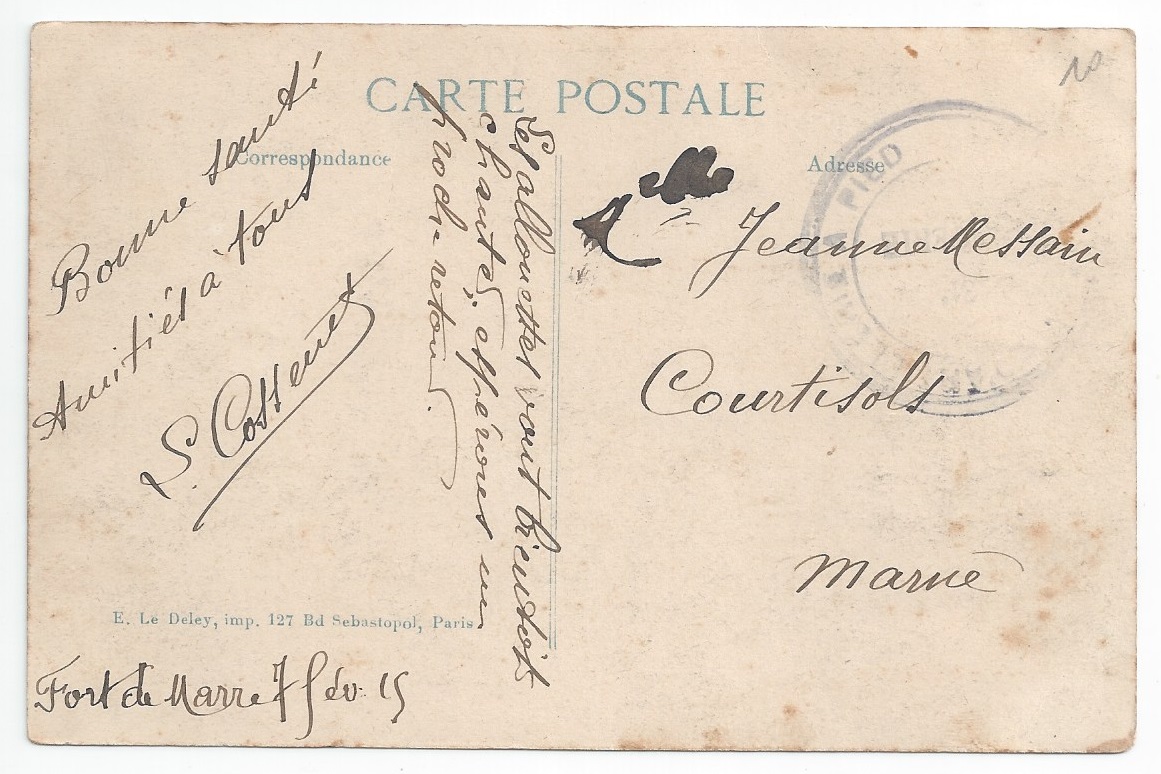 CARTE POSTALE
Correspondance
Adresse
Bonne santé
Amitiés à tous
S. Cossenet
Les allouettes vont bientôt
chanter, espérons un
proche retour.
Jeanne Messain
Courtisols
Marne
E. Le Deley, imp. 127 Bd Sebastopol, Paris
Fort de Marre 7 fév. 15
A PIED